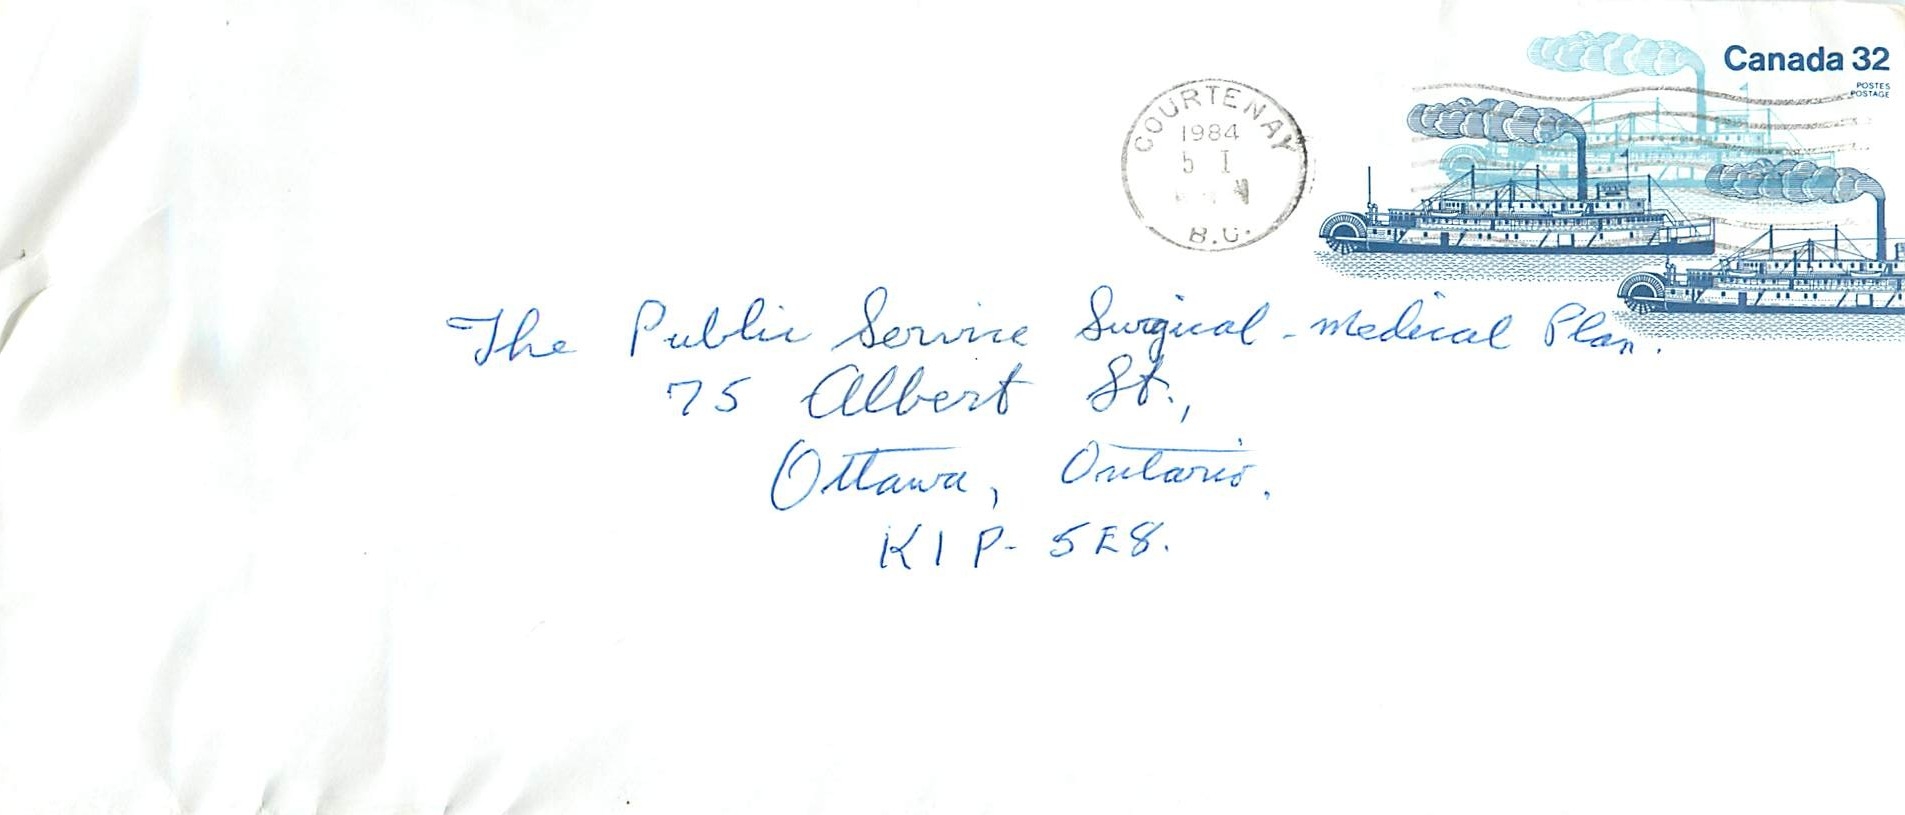 Canada 32
POSTES
POSTAGE
COURTENAY
1984
5 I
B.C.
The Public Service Surgical - Medical Plan.
75 Albert St.,
Ottawa, Ontario.
K1P - 5E8.